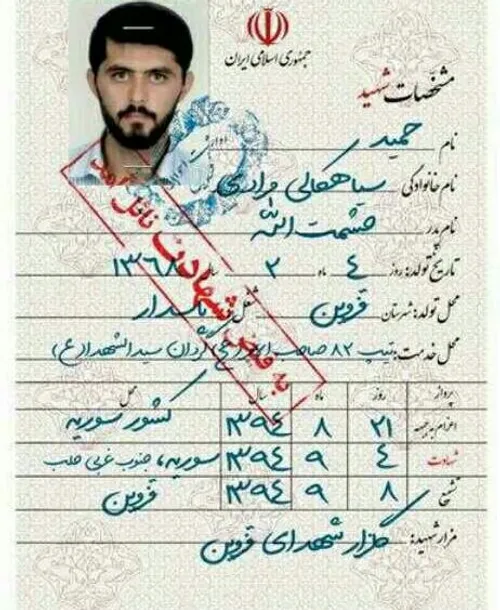 جمهوری اسلامی ایران
مشخصات شهید
نام حمید
نام خانوادگی سیاهکالی مرادی
نام پدر حشمت الله
تاریخ تولد: روز ۴ ماه ۲ سال ۱۳۶۸
محل تولد: شهرستان قزوین شغل پاسدار
محل خدمت: تیپ ۸۲ صاحب الامر (عج) گردان سیدالشهدا (ع)
به فیض شهادت نائل
پرواز روز ماه سال محل
اعزام به جبهه ۲۱ ۸ ۱۳۹۴ کشور سوریه
شهادت ۴ ۹ ۱۳۹۴ سوریه، جنوب غربی حلب
تشیع ۸ ۹ ۱۳۹۴ قزوین
مزار شهید: گلزار شهدای قزوین